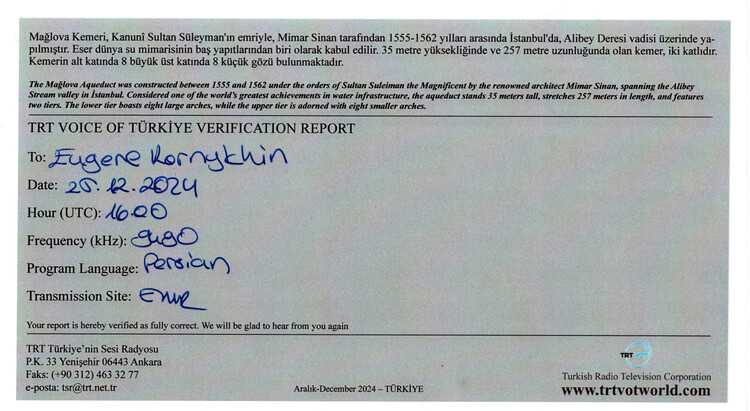 Mağlova Kemeri, Kanunî Sultan Süleyman'ın emriyle, Mimar Sinan tarafından 1555-1562 yılları arasında İstanbul'da, Alibey Deresi vadisi üzerinde ya-
pılmıştır. Eser dünya su mimarisinin baş yapıtlarından biri olarak kabul edilir. 35 metre yüksekliğinde ve 257 metre uzunluğunda olan kemer, iki katlıdır.
Kemerin alt katında 8 büyük üst katında 8 küçük gözü bulunmaktadır.
The Mağlova Aqueduct was constructed between 1555 and 1562 under the orders of Sultan Suleiman the Magnificent by the renowned architect Mimar Sinan, spanning the Alibey
Stream valley in İstanbul. Considered one of the world's greatest achievements in water infrastructure, the aqueduct stands 35 meters tall, stretches 257 meters in length, and features
two tiers. The lower tier boasts eight large arches, while the upper tier is adorned with eight smaller arches.
TRT VOICE OF TÜRKİYE VERIFICATION REPORT
To: Eugene Kornykhin
Date: 25.12.2024
Hour (UTC): 16.00
Frequency (kHz):
Program Language: Persian
Transmission Site: Emr
Your report is hereby verified as fully correct. We will be glad to hear from you again
TRT Türkiye'nin Sesi Radyosu
P.K. 33 Yenişehir 06443 Ankara
Faks: (+90 312) 463 32 77
e-posta: tsr@trt.net.tr
Aralık-December 2024 – TÜRKİYE
TRT
Turkish Radio Television Corporation
www.trtvotworld.com